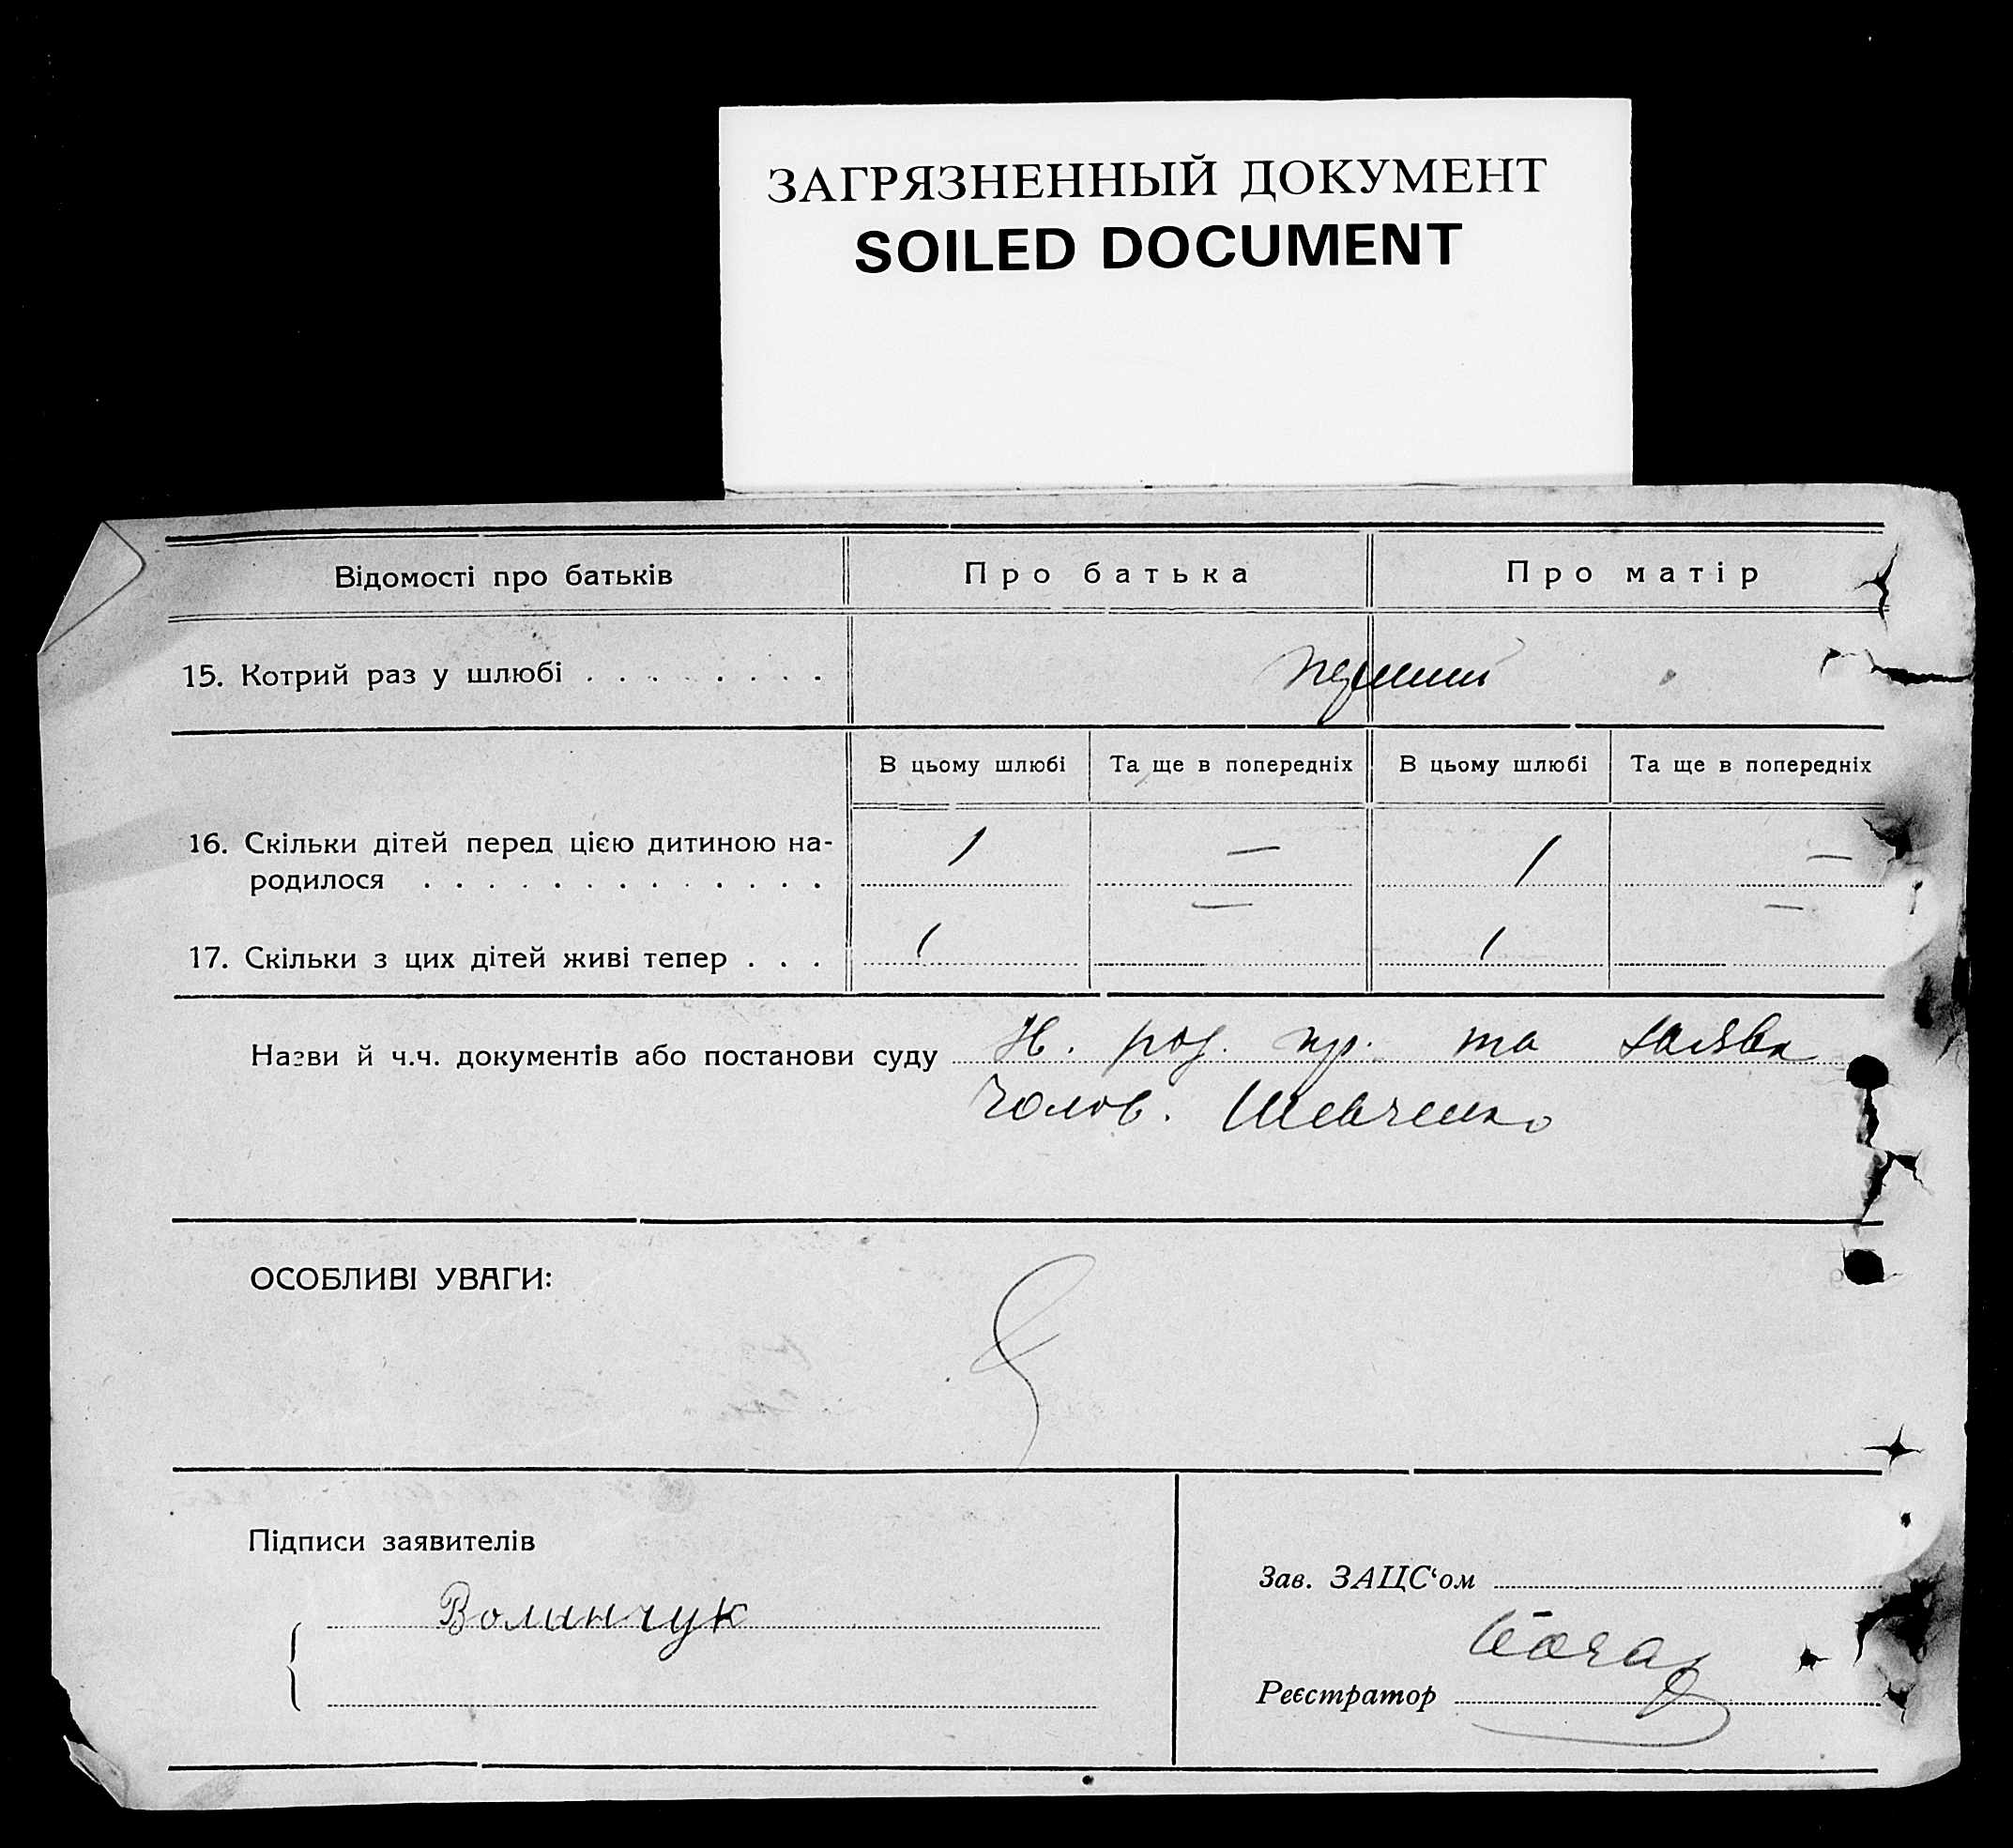 ЗАГРЯЗНЕННЫЙ ДОКУМЕНТ
SOILED DOCUMENT
Відомості про батьків Про батька Про матір
15. Котрий раз у шлюбі . . . . . . . . перший
В цьому шлюбі Та ще в попередніх В цьому шлюбі Та ще в попередніх
16. Скільки дітей перед цією дитиною на-
родилося . . . . . . . . . . . . . 1 — 1 —
17. Скільки з цих дітей живі тепер . . . 1 — 1 —
Назви й ч.ч. документів або постанови суду Н. род. пр. та заява
Чолов. Шевченко
ОСОБЛИВІ УВАГИ:
Підписи заявителів
Зав. ЗАЦС‘ом
Волынчук
Реєстратор